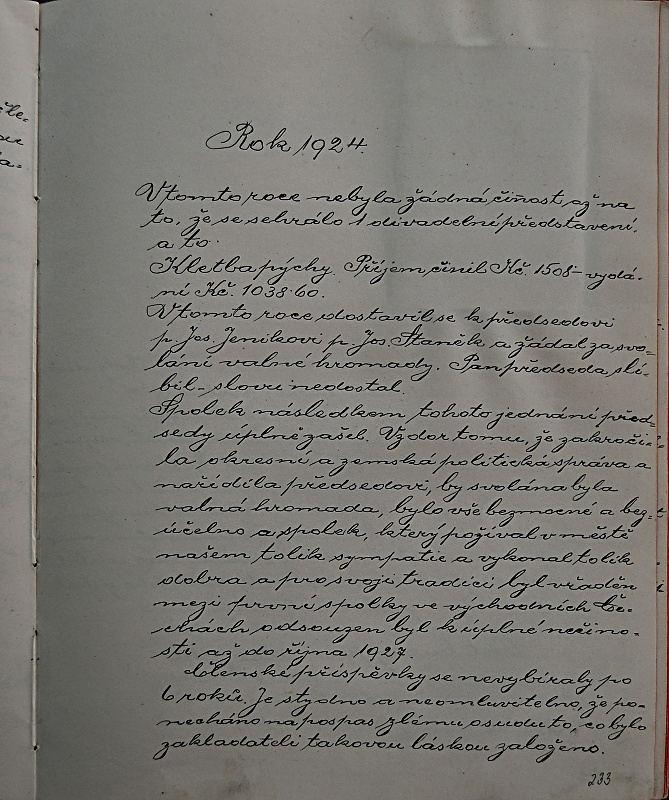 Rok 1924.
V tomto roce nebyla žádná činost, až na
to, že se sehrálo 1 divadelní představení,
a to:
Kletba pýchy. Příjem činil Kč. 1508- vydá-
ní Kč. 1038·60.
V tomto roce dostavil se k předsedovi
p. Jos. Jeníkovi p. Jos. Staněk a žádal za svo-
lání valné hromady. Pan předseda slí-
bil - slovu nedostal.
Spolek následkem tohoto jednání před-
sedy úplně zašel. Vzdor tomu, že zakroči-
la okresní a zemská politická správa a
nařídila předsedovi, by svolána byla
valná hromada, bylo vše bezmocné a bez-
účelno a spolek, který požíval v městě
našem tolik sympatie a vykonal tolik
dobra a pro svoji tradici byl vřaděn
mezi první spolky ve východních Če-
chách odsouzen byl k úplné nečino-
sti až do října 1927.
Členské příspěvky se nevybíraly po
6 roků. Je stydno a neomluvitelno, že po-
necháno na pospas zlému osudu to, co bylo
zakladateli takovou láskou založeno.
233